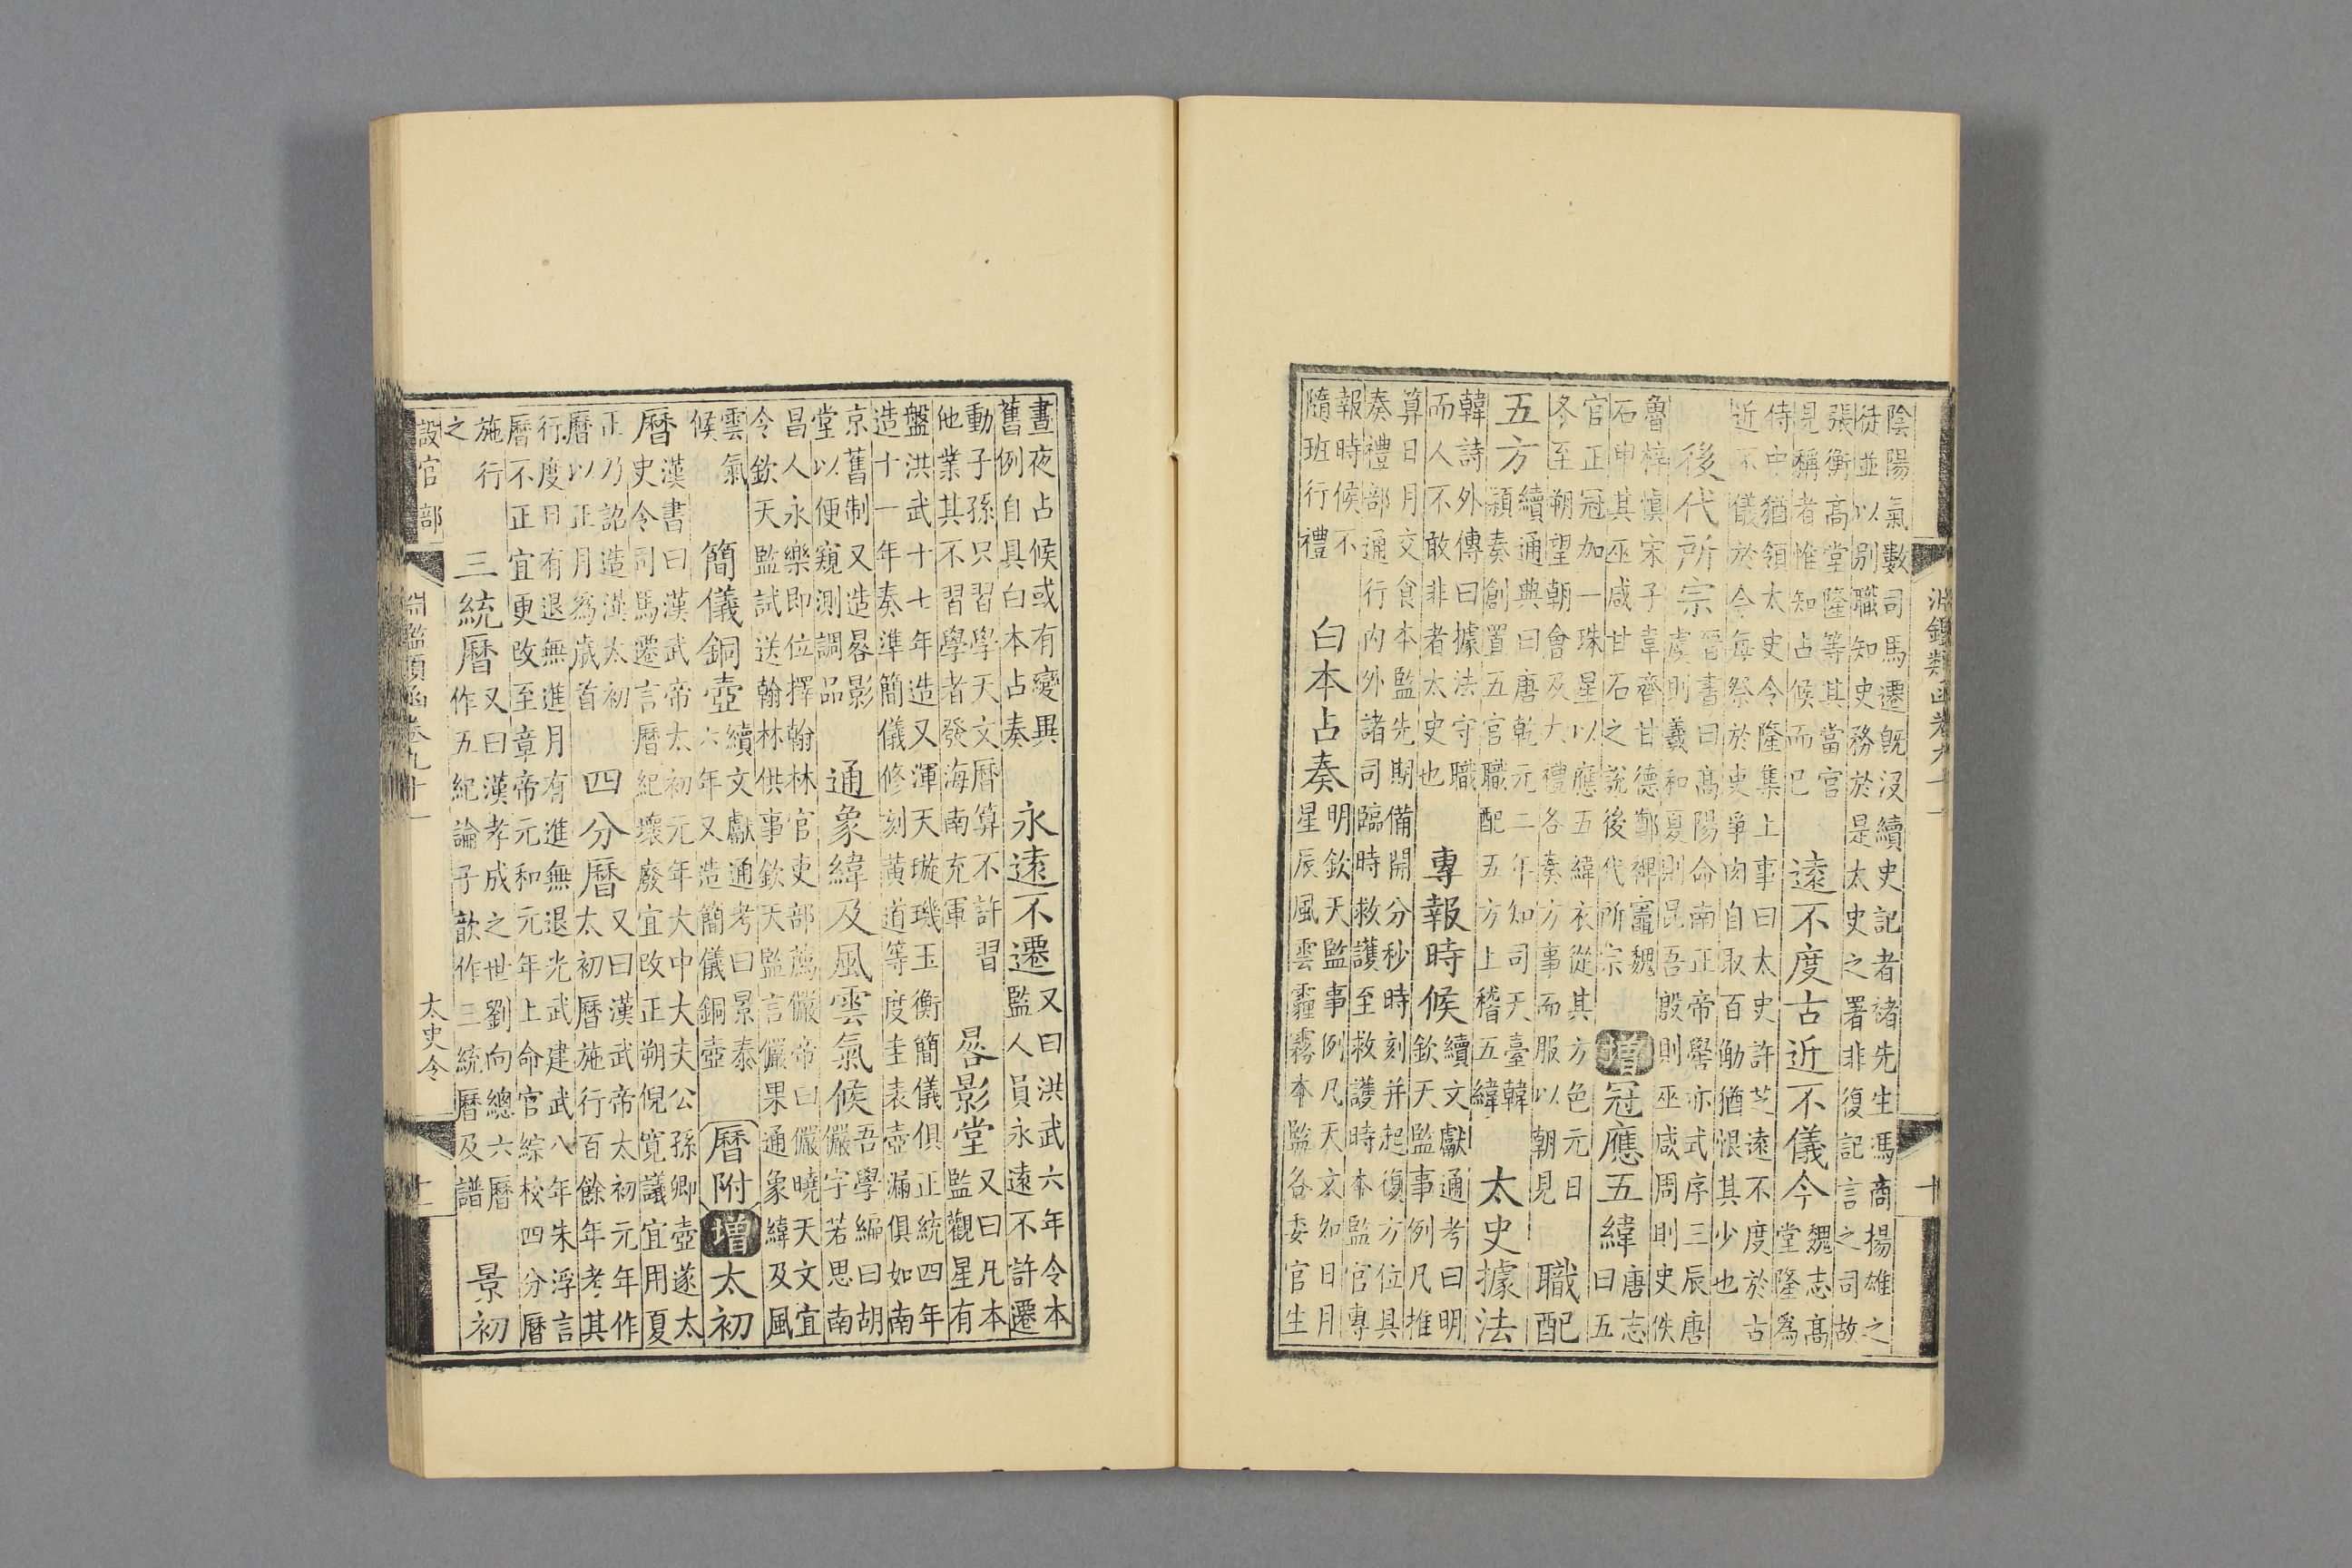 淵鑑類函卷九十一 十
陰陽氣數司馬遷既没續史記者禇先生馮商揚雄之
徒並以别職知史務於是太史之署非復記言之司故
張衡髙堂隆等其當官
見稱者惟知占候而已
遠不度古近不儀今
魏志髙
堂隆爲
侍中猶領太史令隆集上事曰太史許芝遠不度於古
近不儀於今每祭於吏爭肉自取百觔猶恨其少也
後代所宗
晉書曰髙陽命南正帝舉亦式序三辰唐
虞則羲和夏則昆吾殷則巫咸周則史佚
魯梓慎宋子韋齊甘德鄭裨竈魏
石申其巫咸甘石之説後代所宗
增 冠應五緯
唐志
曰五
官正冠加一珠星以應五緯衣從其方色元日
冬至朔望朝會及大禮各奏方事而服以朝見
職配
五方
續通典曰唐乾元二年知司天臺韓
頴奏創置五官職配五方上稽五緯
太史據法
韓詩外傳曰據法守職
而人不敢非者太史也
專報時候
續文獻通考曰明
欽天監事例凡推
算日月交食本監先期備開分秒時刻并起復方位具
奏禮部通行内外諸司臨時救護至救護時本監官專
報時候不
隨班行禮
白本占奏
明欽天監事例凡天文如日月
星辰風雲霾霧本監各委官生
晝夜占候或有變異
舊例自具白本占奏
永遠不遷
又曰洪武六年令本
監人員永遠不許遷
動子孫只習學天文曆算不許習
他業其不習學者發海南充軍
晷影堂
又曰凡本
監觀星有
盤洪武十七年造又渾天璇璣玉衡簡儀俱正統四年
造十一年奏準簡儀修刻黄道等度圭表壺漏俱如南
京舊制又造晷影
堂以便窺測調品
通象緯及風雲氣候
吾學編曰胡
儼字若思南
昌人永樂即位擇翰林官吏部薦儼帝曰儼曉天文宜
令欽天監試送翰林供事欽天監言儼果通象緯及風
雲氣
候
簡儀銅壺
續文獻通考曰景泰
六年又造簡儀銅壺
曆附 增 太初
曆
漢書曰漢武帝太初元年大中大夫公孫卿壺遂太
史令司馬遷言曆紀壞廢宜改正朔倪寛議宜用夏
正乃詔造漢太初
曆以正月爲歲首
四分曆
又曰漢武帝太初元年作
太初曆施行百餘年考其
行度日有退無進月有進無退光武建武八年朱浮言
曆不正宜更改至章帝元和元年上命官綜校四分曆
施行
之
三統曆
又曰漢孝成之世劉向總六曆
作五紀論子歆作三統曆及譜
景初
設官部 淵鑑類函卷九十一 太史令 十一